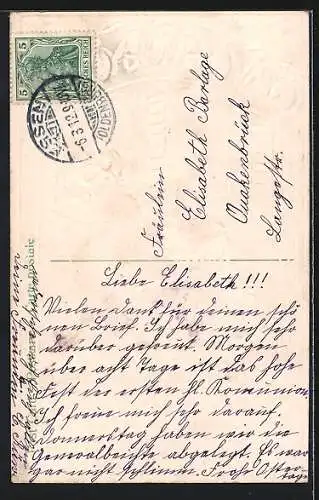 5
5
DEUTSCHES REICH
ESSEN
(OLDENBURG)
6.3.12.6-7N
Fräulein
Elisabeth Barlage
Quakenbrück
Langestr.
Liebe Elisabeth!!!
Vielen Dank für deinen schö
nen Brief. Ich habe mich sehr
darüber gefreut. Morgen
über acht Tage ist das hohe
Fest der ersten hl. Kommunion.
Ich freue mich sehr darauf.
Donnerstag haben wir die
Generalbeichte abgelegt. Es war
gar nicht schlimm. Frohe Oster-
tage